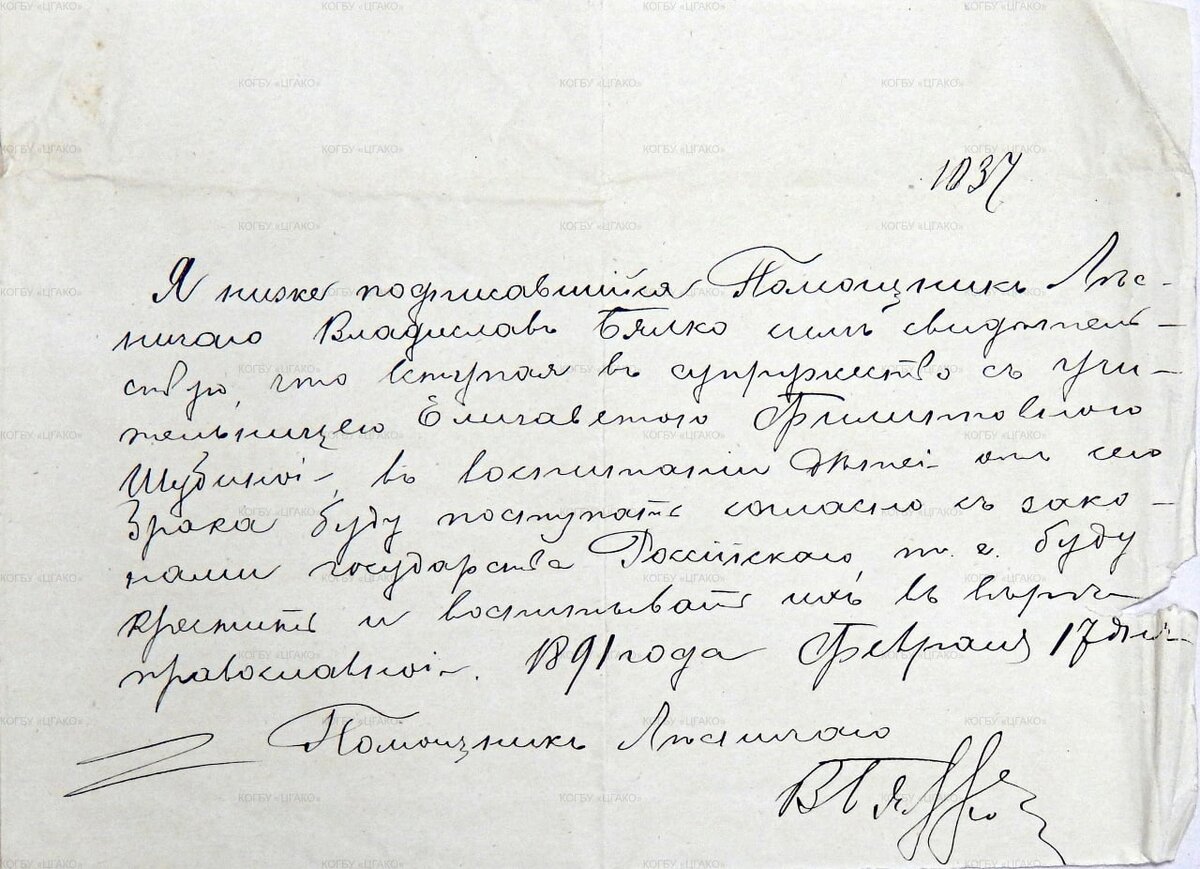 1037
Я ниже подписавшійся Помощникъ Лѣс-
ничаго Владиславъ Бялко симъ свидѣтель-
ствую, что вступая въ супружество съ учи-
тельницею Елизаветою Филипповною
Шубиной, въ воспитаніи дѣтей отъ сего
брака буду поступать согласно съ зако-
нами государства Россійскаго, т. е. буду
крестить и воспитывать ихъ въ вѣрѣ
православной. 1891 года Февраля 17 дня
Помощникъ Лѣсничаго
В Бялко
КОГБУ «ЦГАКО»